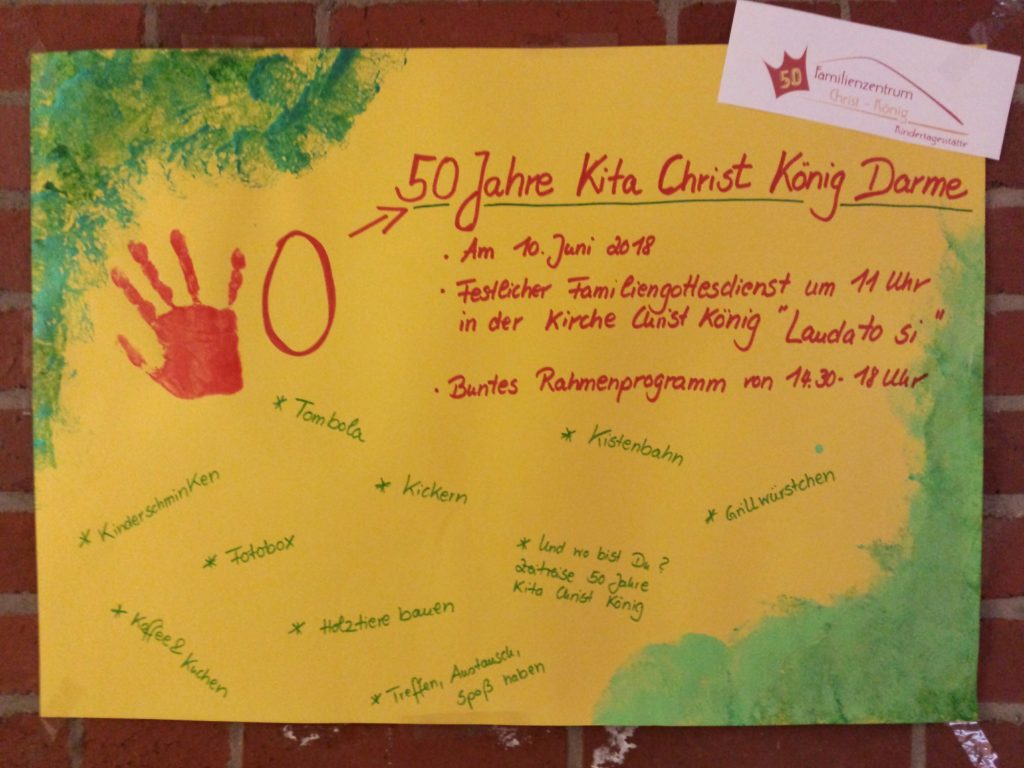 50 Familienzentrum
Christ-König
Kindertagesstätte
50 Jahre Kita Christ König Darme
· Am 10. Juni 2018
· Festlicher Familiengottesdienst um 11 Uhr
in der Kirche Christ König "Laudato si"
· Buntes Rahmenprogramm von 14.30- 18 Uhr
0
* Tombola
* Kistenbahn
* Kinderschminken
* Kickern
* Grillwürstchen
* Fotobox
* Und wo bist Du?
Zeitreise 50 Jahre
Kita Christ König
* Kaffee & Kuchen
* Holztiere bauen
* Treffen, Austausch,
Spaß haben